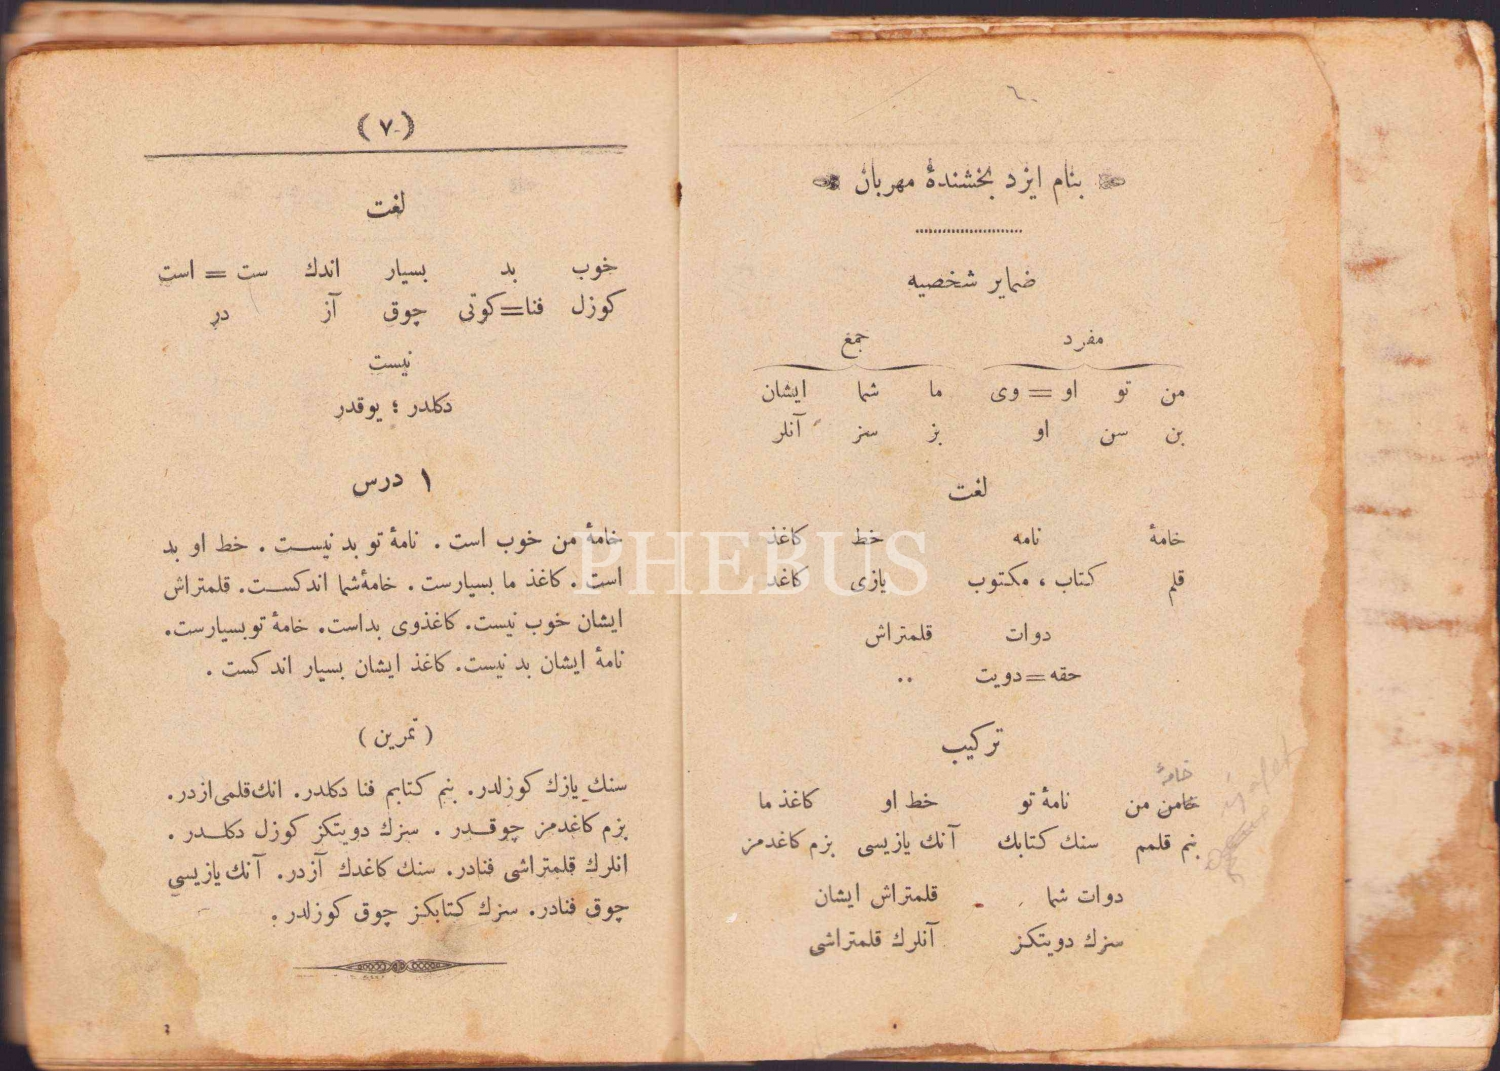 بنام ايزد بخشندهٔ مهربان
ضماير شخصيه
مفرد جمع
من تو او = وى ما شما ايشان
بن سن او بز سز آنلر
لغت
خامهٔ نامه خط كاغذ
قلم كتاب ، مكتوب يازى كاغد
دوات قلمتراش
حقه = دويت ..
تركيب
خامهٔ
خامن من نامهٔ تو خط او كاغذ ما
بنم قلمم سنك كتابك آنك يازيسى بزم كاغدمز
دوات شما قلمتراش ايشان
سزك دويتكز آنلرك قلمتراشى
(٧)
لغت
خوب بد بسيار اندك ست = است
كوزل فنا=كوتى چوق آز در
نيست
دكلدر ؛ يوقدر
١ درس
خامهٔ من خوب است . نامهٔ تو بد نيست . خط او بد
است . كاغذ ما بسيارست . خامهٔ شما اندكست. قلمتراش
ايشان خوب نيست. كاغذوى بداست. خامهٔ توبسيارست.
نامهٔ ايشان بد نيست. كاغذ ايشان بسيار اندكست .
( تمرين )
سنك يازك كوزلدر. بنم كتابم فنا دكلدر. انك قلمى ازدر.
بزم كاغدمز چوقدر . سزك دويتكز كوزل دكلدر .
انلرك قلمتراشى فنادر. سنك كاغدك آزدر. آنك يازيسى
چوق فنادر. سزك كتابكز چوق كوزلدر .
PHEBUS